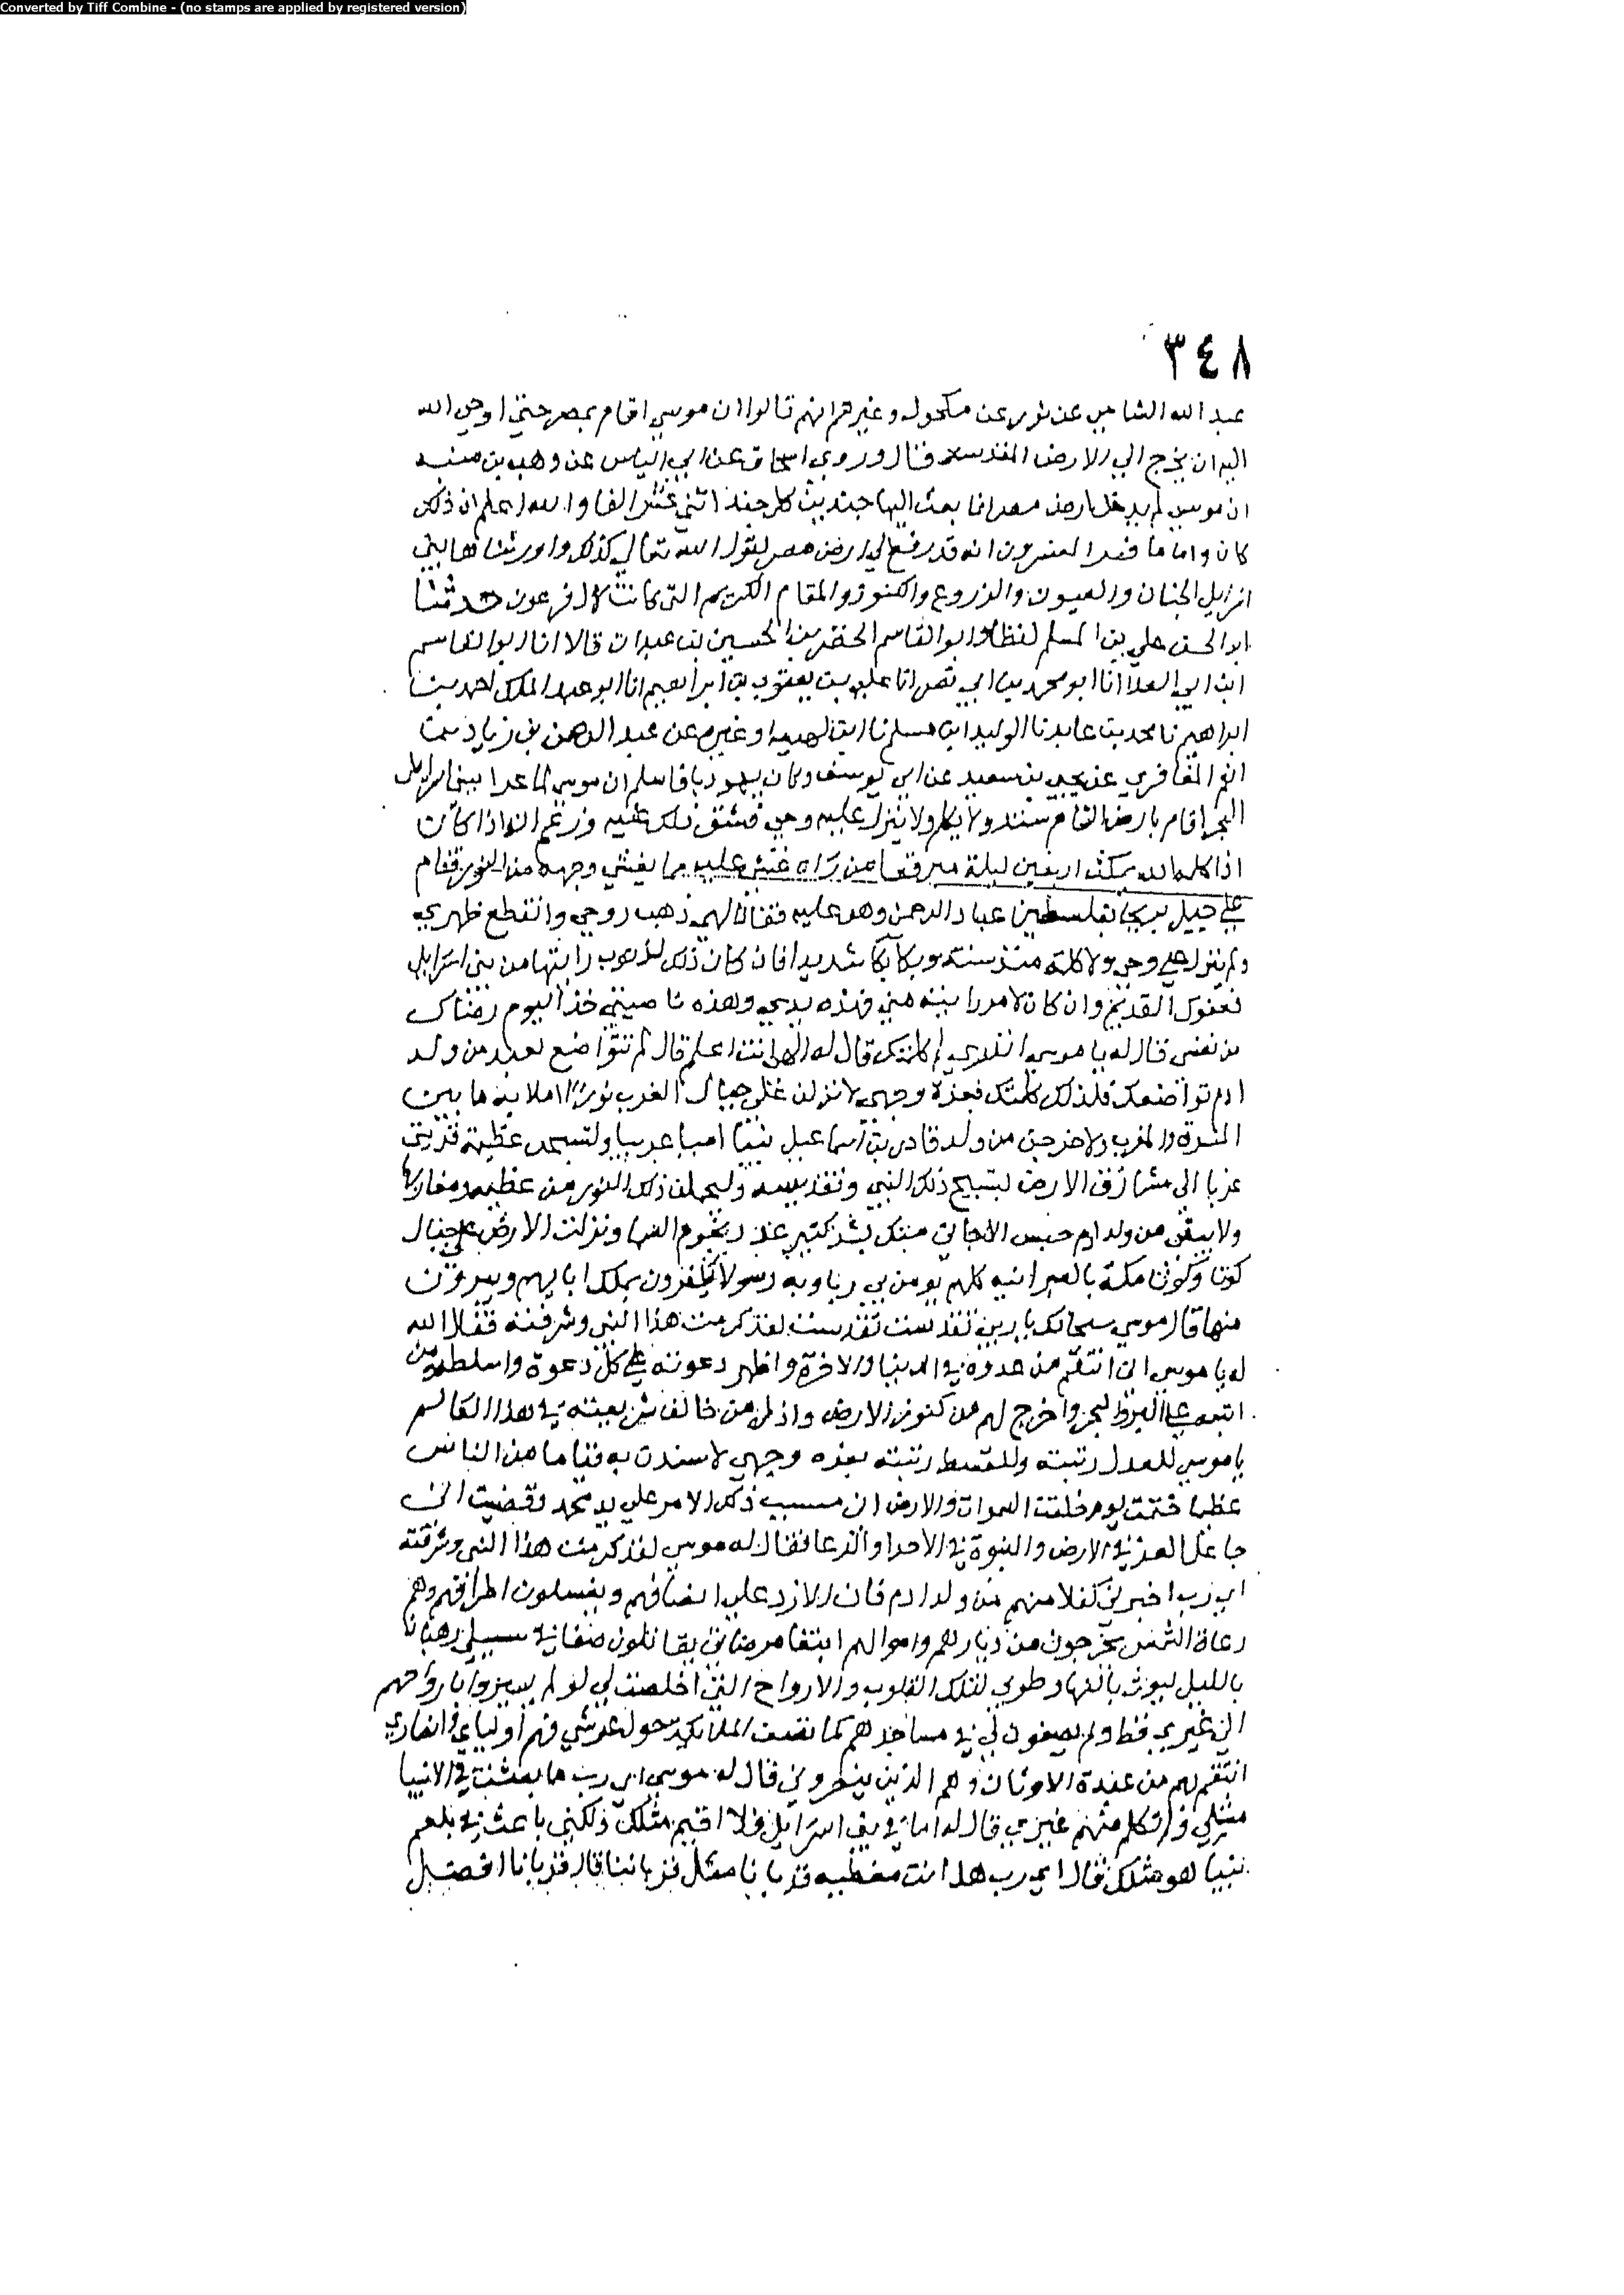 Converted by Tiff Combine - (no stamps are applied by registered version)
٣٤٨
عبد الله الشامي عن ثور عن مكحول وغيرهم انهم قالوا ان موسى اقام بمصر حتى اوحى الله
اليه ان يخرج الى الارض المقدسة قال وروى اسحاق عن ابي الياس عن وهب بن منبه
ان موسى لم يدخل ارض مصر انما بعث اليها جندين كل جند اثني عشر الفا والله اعلم ان ذلك
كان واما ما فسر المفسرون انه قد رفع الى ارض مصر لقول الله تعالى كذلك واورثناها بني
اسرايل الجنان والعيون والزروع والكنوز والمقام الكريم التي كانت لال فرعون حدثنا
ابو الحسن علي بن المسلم لفظا وابو القاسم الخضر بن الحسين بن عبدان قالا انا ابو القاسم
ابن ابي العلا انا ابو محمد بن ابي نصر انا علي بن يعقوب بن ابراهيم انا ابو عبد الملك احمد بن
ابراهيم نا محمد بن عايد نا الوليد ابن مسلم نا ابن لهيعة وغيره عن عبد الرحمن بن زياد بن
انعم المغافري عن يحيى بن سعيد عن ابي يوسف وكان يهوديا فاسلم ان موسى لما عدا ببني اسرايل
البحر اقام بارض الشام سنة ولا يكلم ولا ينزل عليه وحي فشق ذلك عليه وزعم انه اذا كان
اذا كلمه الله يمكث اربعين ليلة مبرقعا من راه غشي عليه مما يغشي وجهه من النور فقام
على جبل بريحا بفلسطين عباد الرحمن وهو عليه فقال الهي ذهب روحي وانقطع ظهري
ولم ينزل علي وحي ولا كلمة منذ سنة وبكا بكا شديدا فان كان ذلك لذنوب رايتها من بني اسرايل
فعفوك القديم وان كان لامر رايته مني فهذه يدي وهذه ناصيتي خذ اليوم رضاك
من نفسي قال له يا موسى اتدري لم كلمتك قال له الهي انت اعلم قال لم يتواضع لي عبد من ولد
ادم تواضعك فلذلك كلمتك فبعزة وجهي لانزلن على جبال العرب نورا املا به ما بين
المشرق والمغرب ولاخرجن من ولد قادر بن اسماعيل نبيا اميا عربيا ولتسبحن عظيمة قريتي
عربا الى مشارق الارض لتسبيح ذلك النبي وتقديسه وليحملن ذلك النور من عظيم ومغاربها
ولا يبقى من ولد ادم جنس الا جاني منك بشر كثير عدد نجوم السما ونزلت الارض على جبال
كوثا وكوثا مكة بالعبرانية كلهم يومن بي ربا وبه رسولا يكفرون بملك ابايهم ويبرون
منها قال موسى سبحانك يا رب تقدست تقدست لقد كرمت هذا النبي وشرفته فقال الله
له يا موسى اني انتقم من عدوه في الدنيا والاخرة واظهر دعوته على كل دعوة واسلطه ومن
اتبعه على البر والبحر واخرج لهم من كنوز الارض واذل من خالف شريعته في هذا العالم
يا موسى للعدل رتبته وللقسط رتبته بعزة وجهي لاسندن به فياما من الناس
عظيما ختمت يوم خلقت السموات والارض ان مسبب ذلك الامر على يد محمد وقضيت اني
جاعل العز في الارض والنبوة في الاحرا والرعا فقال له موسى لقد كرمت هذا النبي وشرفته
اي رب اخبرني كفلا منهم من ولد ادم قال الازر على انصافهم ويغسلون اطرافهم وهم
رعاة الشمس يخرجون من ديارهم واموالهم ابتغا مرضاتي يقاتلون صفا في سبيلي رهبانا
بالليل ليوث بالنهار طوبى لتلك القلوب والارواح التي اخلصت لي لو لم يسيروا بارواحهم
الى غيري قط ولم يصفون لي في مساجدهم كما تصف الملايكة حول عرشي فهم اولياي وانصاري
انتقم لهم من عبدة الاوثان وهم الذين ينصروني قال له موسى اي رب ما بعثت في الانبيا
مثلي ولم تكلم منهم غيري قال له اما في بني اسرايل فلا اقيم مثلك ولكني باعث في بلعم
نبيا هو مثلك قال اي رب هل انت معطيه قربانا مثل قرباننا قال قربانا افضل